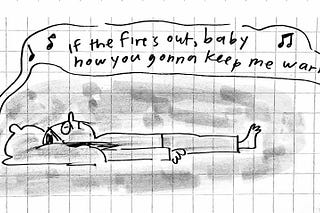 if the fire's out, baby
how you gonna keep me war